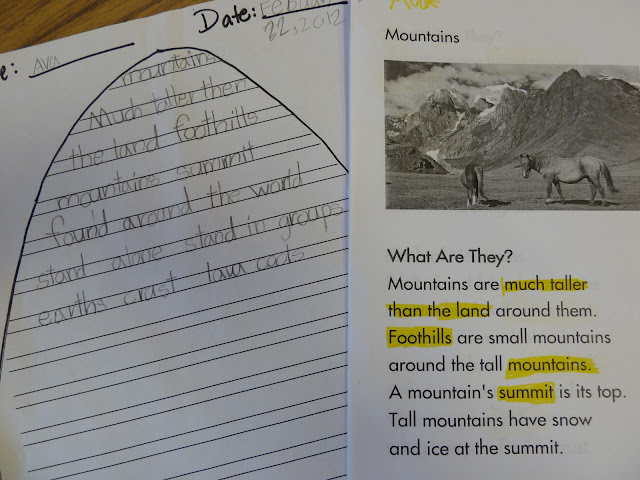 e: Ava
Date: Februar
22, 2012
mountains
Much taller then
the land foothills
mountains summit
found around the world
stand alone stand in groups
earths crust lava cools
Mountains
What Are They?
Mountains are much taller
than the land around them.
Foothills are small mountains
around the tall mountains.
A mountain's summit is its top.
Tall mountains have snow
and ice at the summit.